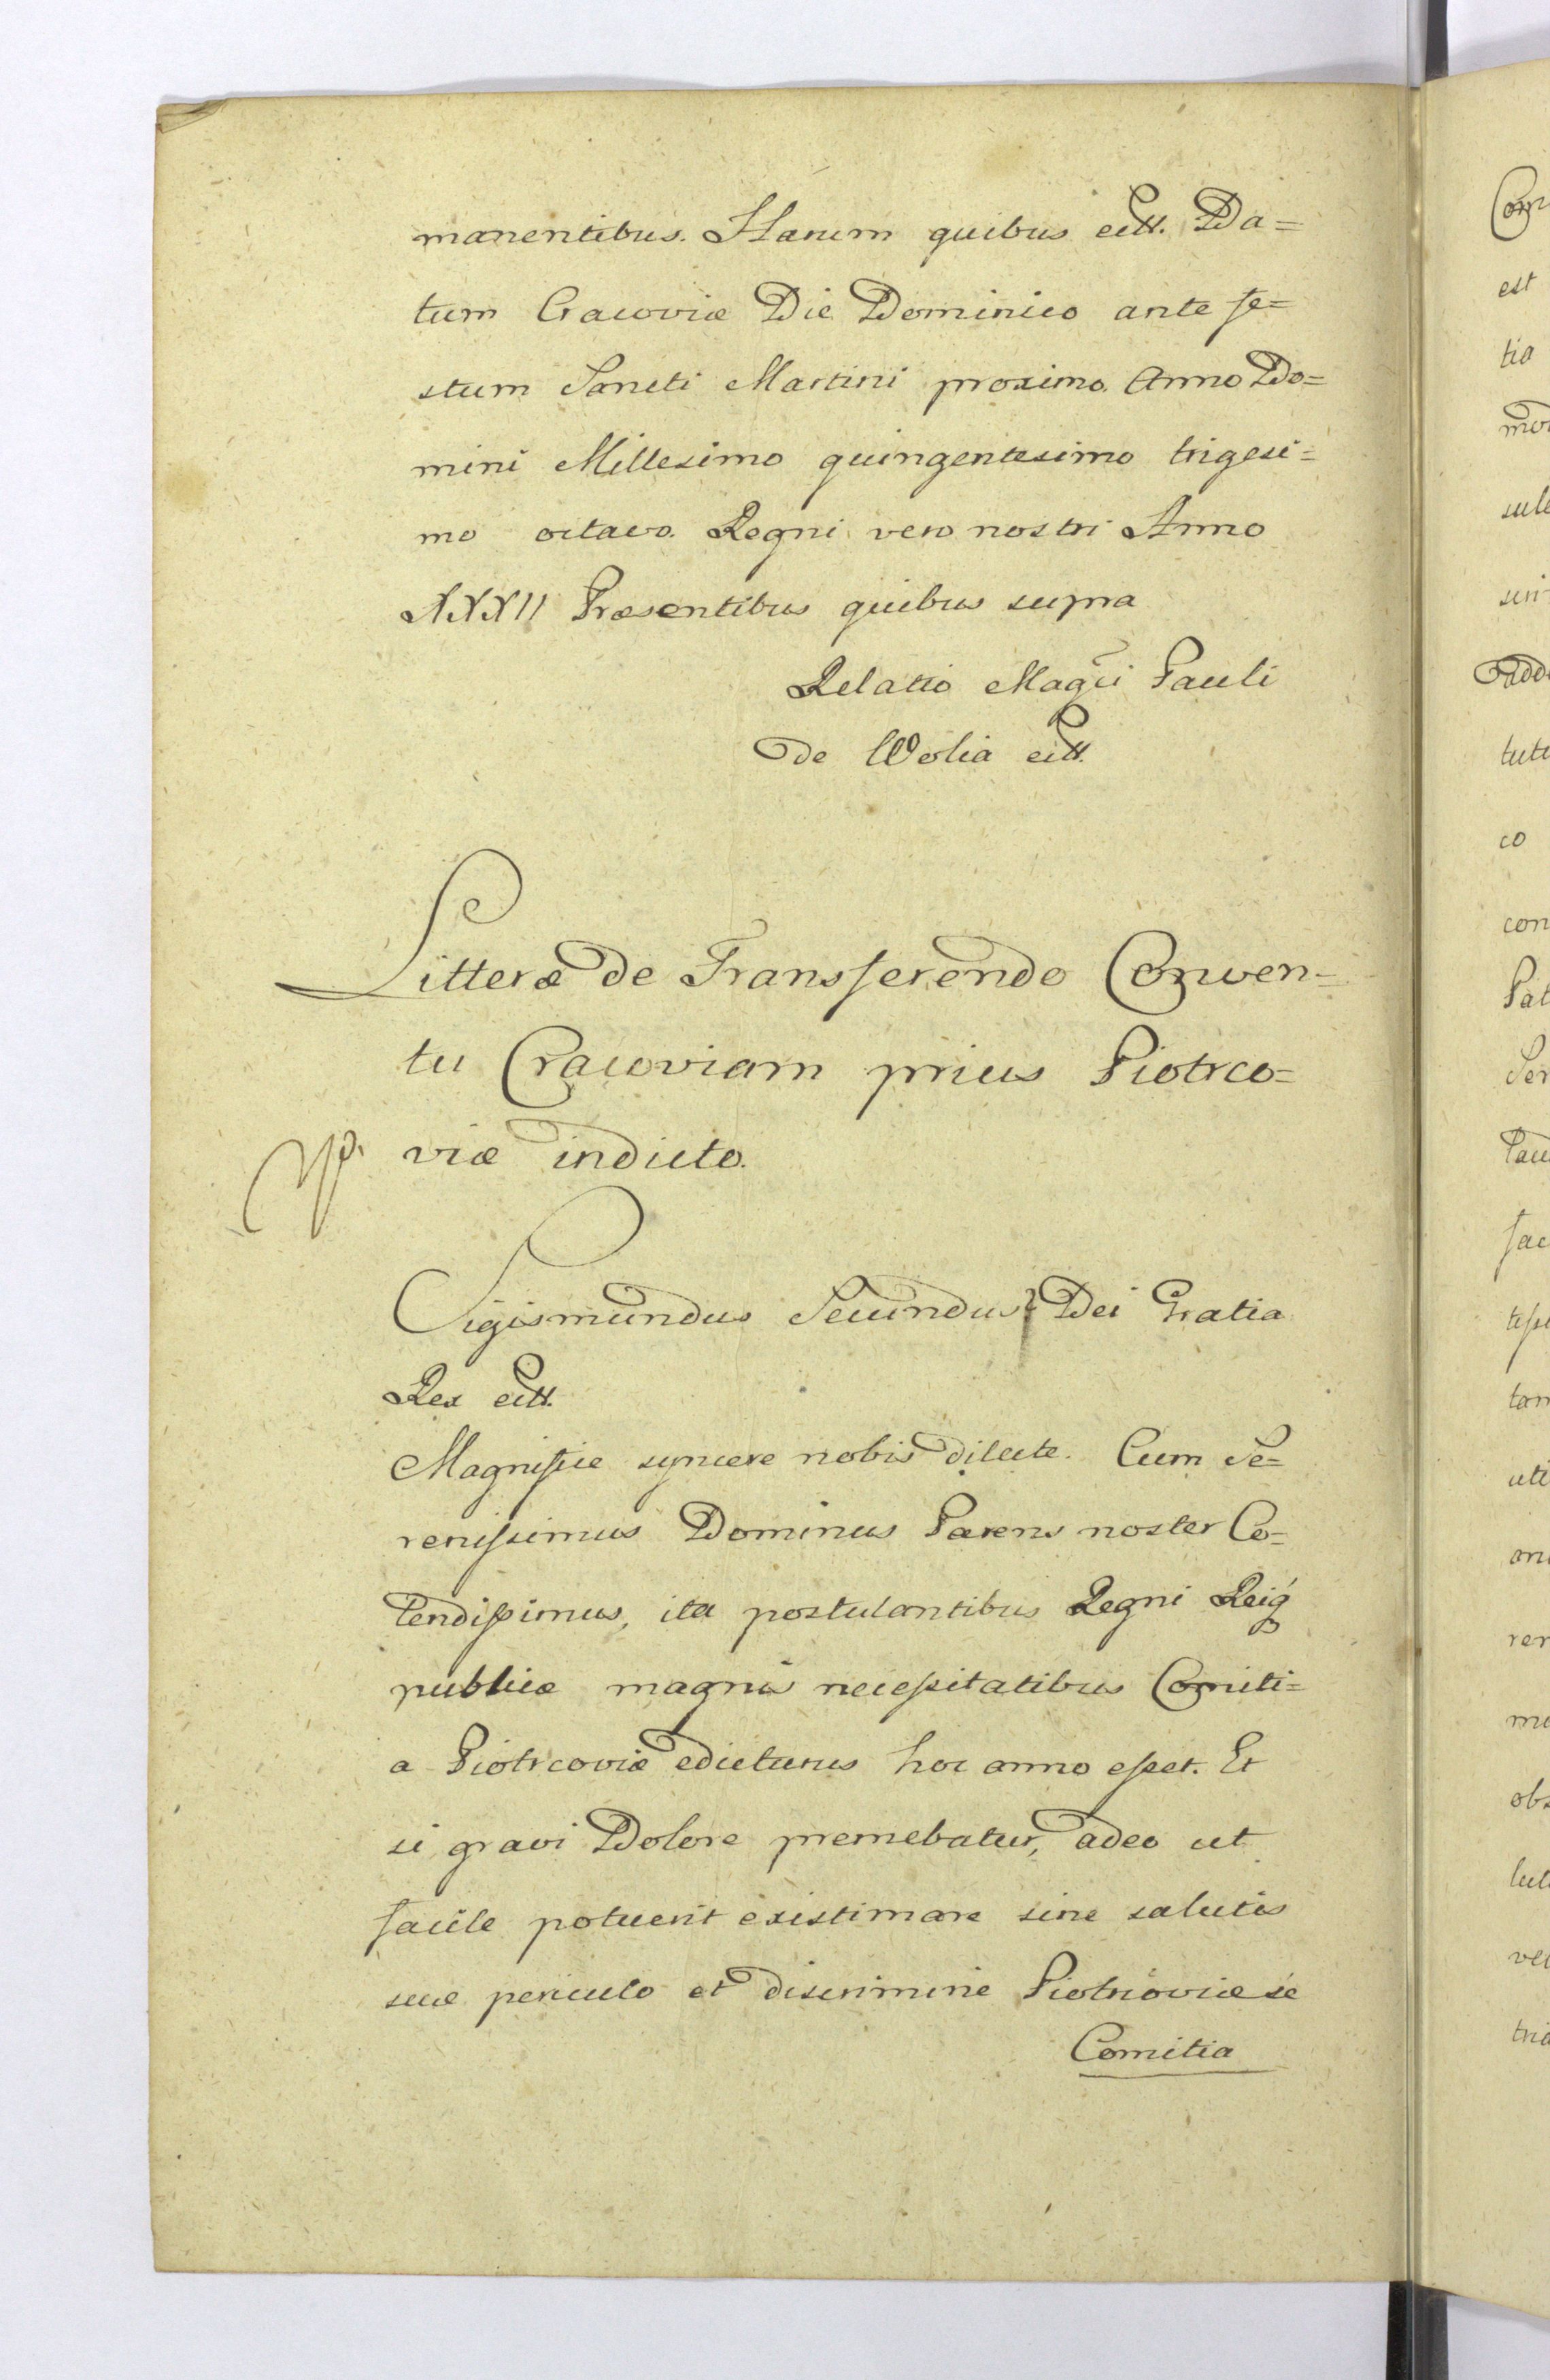 manentibus. Harum quibus ett. Da=
tum Cracoviæ Die Dominico ante fe=
stum Sancti Martini proximo. Anno Do=
mini Millesimo quingentesimo trigesi=
mo octavo. Regni vero nostri Anno
XXXII Præsentibus quibus supra
Relatio Magci Pauli
de Wolia ett.
Litteræ de Transferendo Conven=
tu Cracoviam prius Piotrco=
viæ indicto.
Sigismundus Secundus Dei Gratia
Rex ett.
Magnifice syncere nobis dilecte. Cum Se=
renissimus Dominus Parens noster Co=
lendissimus, ita postulantibus Regni Reiq
publicæ magnis necessitatibus Comiti=
a Piotrcoviæ edicturus hoc anno esset. Et
si gravi Dolore premebatur, adeo ut
facile potuerit existimare sine salutis
suæ periculo et discrimine Piotrcoviæ se
Comitia
Con
est
tia
sule
co
con
Pat
Ser
fac
tam
uti
ren
obs
tria